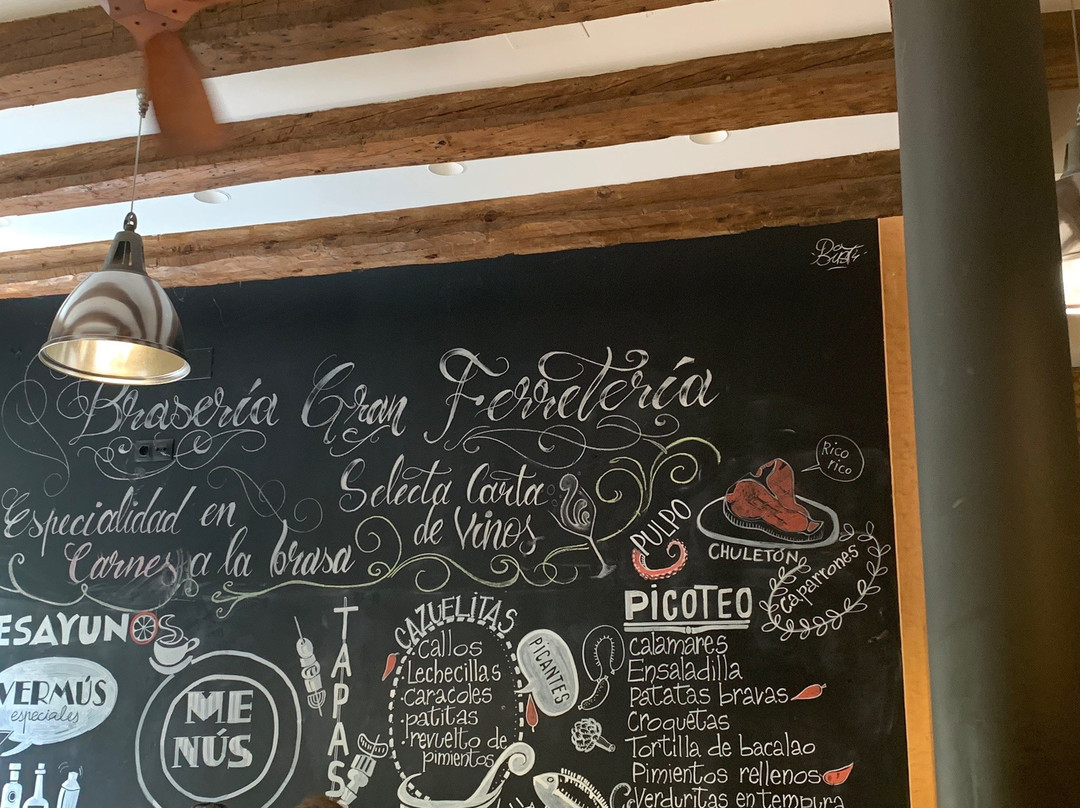 Don
Brasería Gran Ferretería
Rico
rico
Selecta Carta
de Vinos
Especialidad en
Carnes a la brasa
PULPO
CHULETÓN
Caparrones
ESAYUNO
VERMÚS
especiales
ME
NÚS
TAPAS
CAZUELITAS
callos
Lechecillas
caracoles
patitas
revuelto de
pimientos
PICANTES
PICOTEO
calamares
Ensaladilla
Patatas bravas
Croquetas
Tortilla de bacalao
Pimientos rellenos
Verduritas en tempura